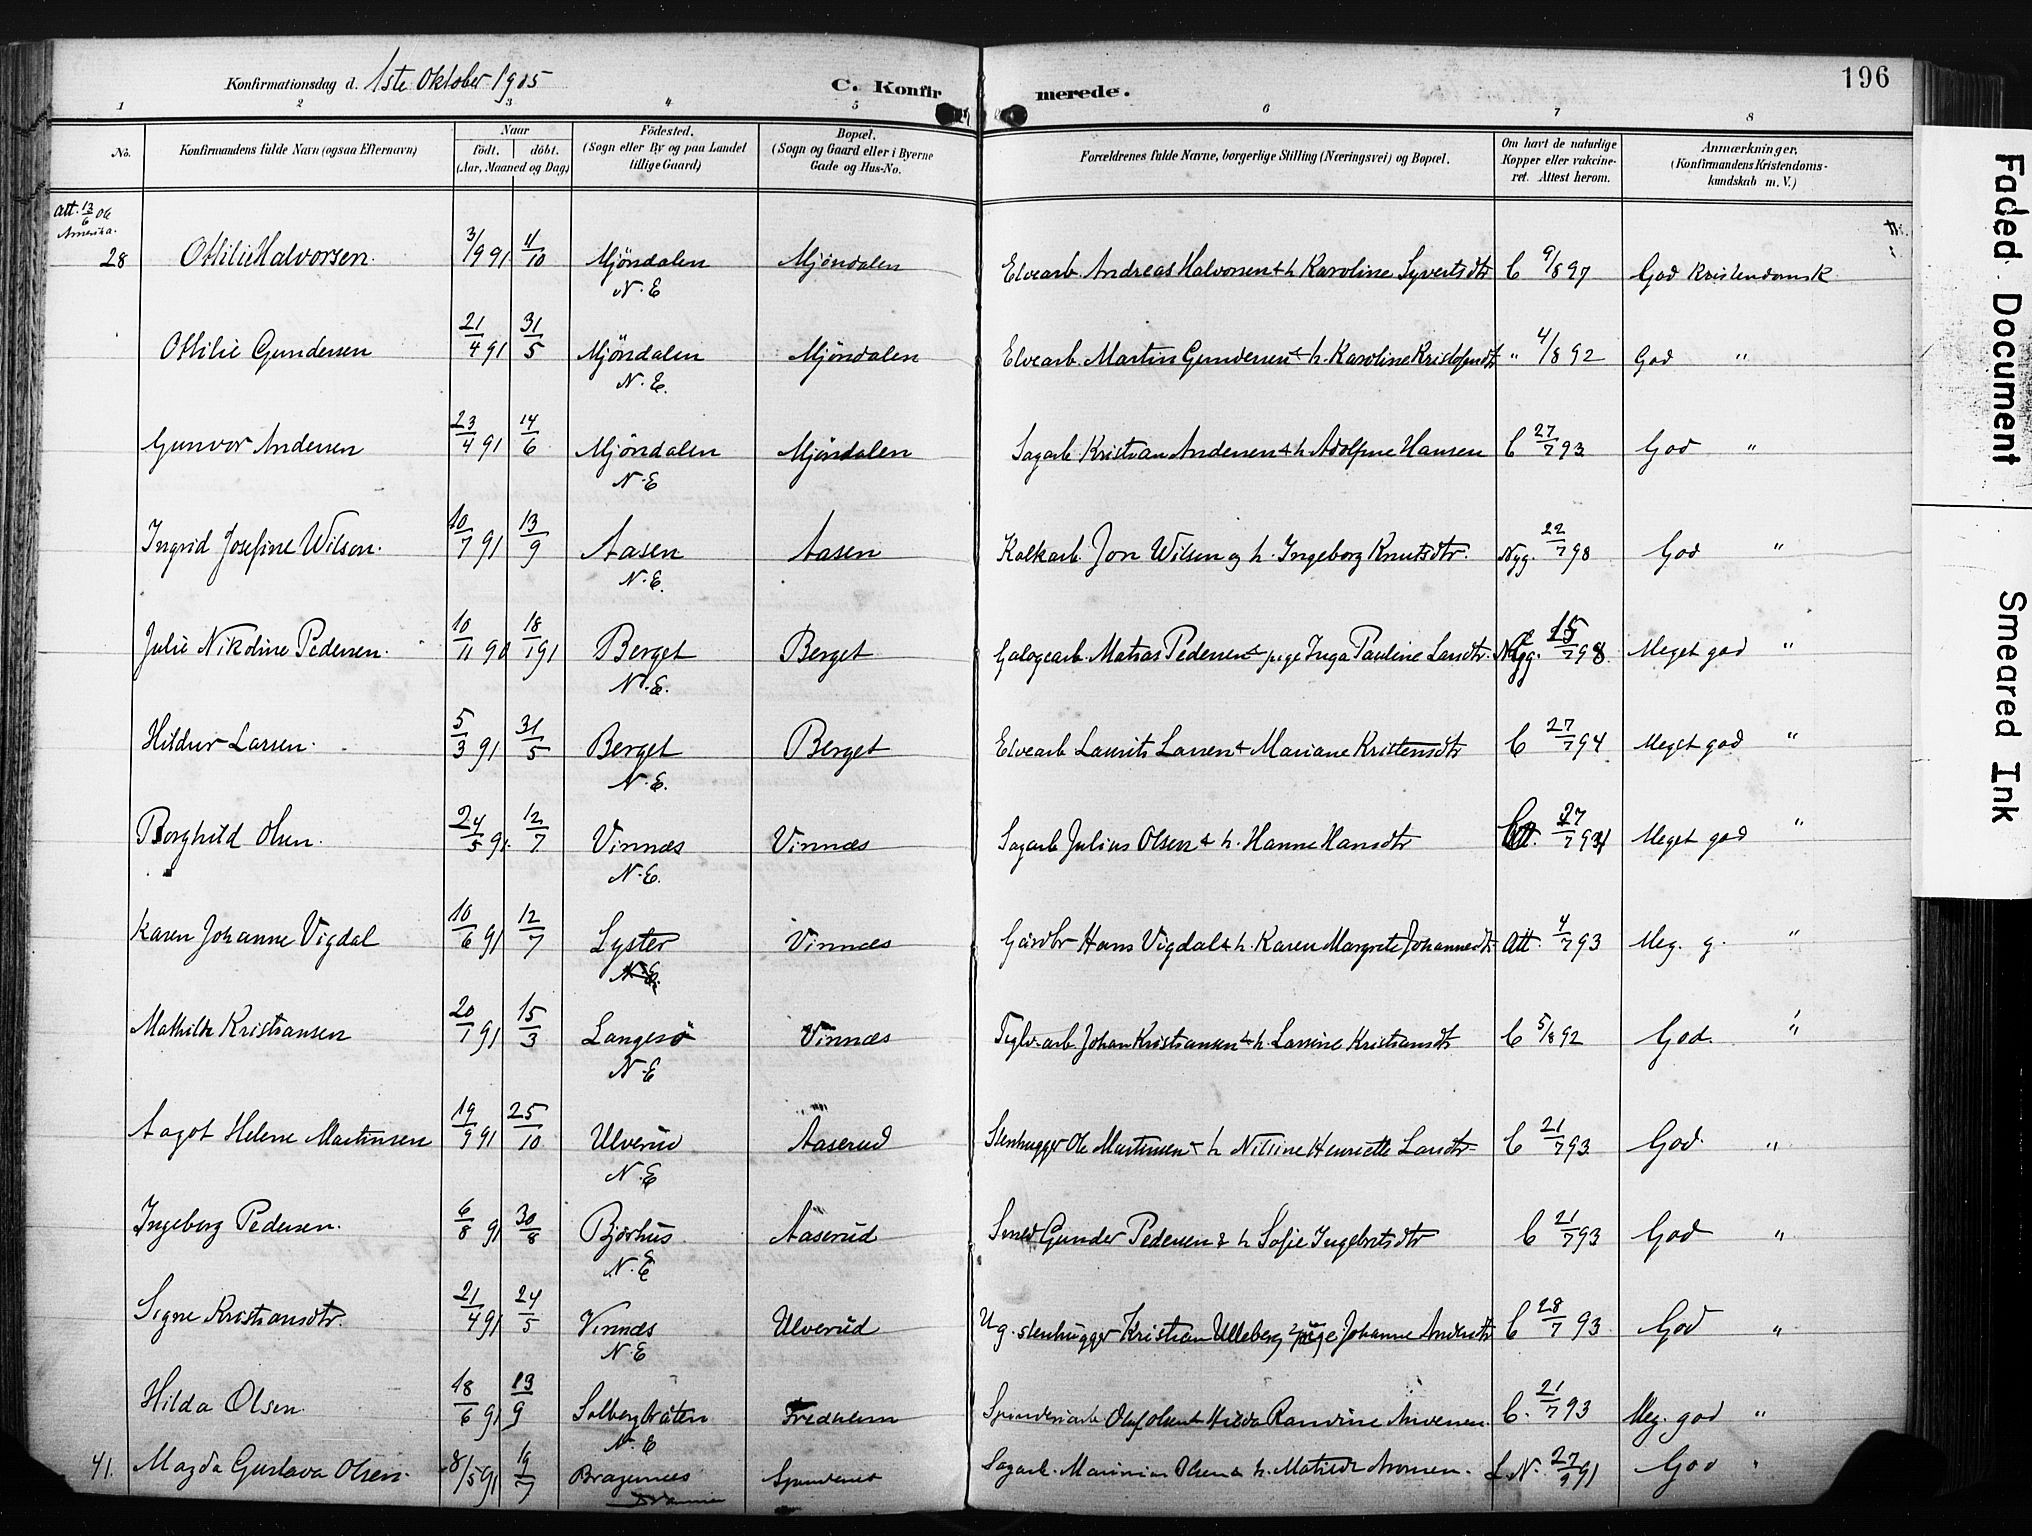 Konfirmationsdag d. 1ste Oktober 1905 C. Konfirmerede. 196
1 2 3 4 5 6 7 8
No. Konfirmandens fulde Navn (ogsaa Efternavn) Naar født. døbt. (Aar, Maaned og Dag) Fødested. (Sogn eller By og paa Landet tillige Gaard) Bopæl. (Sogn og Gaard eller i Byerne Gade og Hus-No. Forældrenes fulde Navne, borgerlige Stilling (Næringsvei) og Bopæl. Om havt de naturlige Kopper eller vakcineret. Attest herom. Anmærkninger, (Konfirmandens Kristendomskundskab m. V.)
Att. 13/6 06
Amerika.
28 Othilie Halvorsen. 3/9 91 11/10 Mjöndalen N.E Mjöndalen Elvearb. Andreas Halvorsen & h. Karoline Syvertsdtr C 9/8 97 God Kristendomsk
Othilie Gundersen 21/4 91 31/5 Mjöndalen N.E. Mjöndalen Elvearb. Martin Gundersen & h. Karoline Kristofersdtr " 4/8 92 God "
Gunvor Andersen 23/4 91 14/6 Mjöndalen N.E Mjöndalen Sagarb Kristian Andersen & h Adolfine Hansen C 27/7 93 God "
Ingrid Josefine Wilson. 10/7 91 13/9 Aasen N.E. Aasen Kalkarb. Jon Wilson og h. Ingeborg Knutsdtr. Nyg. 22/7 98 God "
Julie Nikoline Pedersen. 10/11 90 18/1 91 Berget N.E. Berget Matias Pedersen & pige Inga Pauline Larsdtr. Nyg. 15/7 98 Meget god "
Hildur Larsen. 5/3 91 31/5 Berget N.E. Berget Elvearb Laurits Larsen & Mariane Kristensdtr C 27/7 94 Meget god "
Borghild Olsen. 24/5 91. 12/7 Vinnæs N.E. Vinnæs Sagarb Julius Olsen & h. Hanne Hansdtr 27/7 94 Meget god "
Karen Johanne Vigdal 10/6 91 12/7 Lyster N.E. Vinnæs Gårdbr Hans Vigdal & h. Karen Margrete Johannesdtr Att. 4/7 93 Meg. g. "
Mathilde Kristiansen 20/7 91 15/3 Langesø N.E Vinnæs Teglv.arb Johan Kristiansen & h Lassine Kristiansdtr C 5/8 92 God. "
Aagot Helene Martinsen 19/9 91 25/10 Ulverud N.E Aaserud Stenhugger Ole Martinsen & h Nilsine Henriette Larsdtr C 21/7 93 God. "
Ingeborg Pedersen. 6/8 91 30/8 Bjørhus N.E Aaserud Smed Gunder Pedersen & h Sofie Ingebretsdtr C 21/7 93 God "
Signe Kristiansdtr. 21/4 91 24/5 Vinnæs N.E Ulverud Ug. stenhugger Kristian Ulleberg & pige Johanne Andersdtr C 28/7 93 God "
Hilda Olsen. 18/6 91 13/9 Solbergbråten N.E Fredholm Spinderiarb Olaf Olsen & Hilda Randine Iversen. C. 21/7 93 Meg. god "
41. Magda Gustava Olsen. 8/5 91 19/7 Bragernes Drammen Spinderiet Sagarb. Olsen & h. Matilde L.N. 27/9 91 God "
Faded Document
Smeared Ink